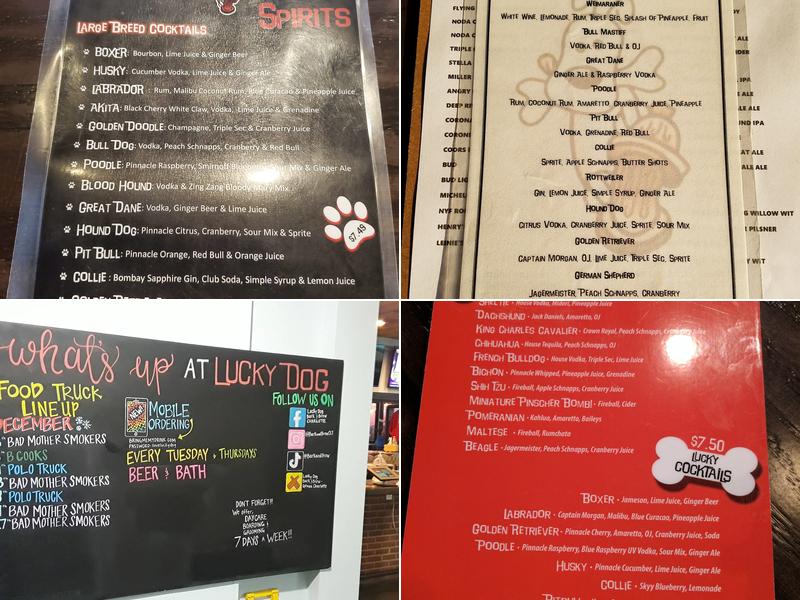 Spirits
Large Breed Cocktails
Boxer: Bourbon, Lime Juice & Ginger Beer
Husky: Cucumber Vodka, Lime Juice & Ginger Ale
Labrador: Rum, Malibu Coconut Rum, Blue Curacao & Pineapple Juice
Akita: Black Cherry White Claw, Vodka, Lime Juice & Grenadine
Golden Doodle: Champagne, Triple Sec & Cranberry Juice
Bull Dog: Vodka, Peach Schnapps, Cranberry & Red Bull
Poodle: Pinnacle Raspberry, Smirnoff Blueberry, Sour Mix & Ginger Ale
Blood Hound: Vodka & Zing Zang Bloody Mary Mix
Great Dane: Vodka, Ginger Beer & Lime Juice
Hound Dog: Pinnacle Citrus, Cranberry, Sour Mix & Sprite
Pit Bull: Pinnacle Orange, Red Bull & Orange Juice
Collie: Bombay Sapphire Gin, Club Soda, Simple Syrup & Lemon Juice
$7.49
Weimaraner
White Wine, Lemonade, Rum, Triple Sec, Splash of Pineapple, Fruit
Bull Mastiff
Vodka, Red Bull & OJ
Great Dane
Ginger Ale & Raspberry Vodka
Poodle
Rum, Coconut Rum, Amaretto, Cranberry Juice, Pineapple
Pit Bull
Vodka, Grenadine, Red Bull
Collie
Sprite, Apple Schnapps, Butter Shots
Rottweiler
Gin, Lemon Juice, Simple Syrup, Ginger Ale
Hound Dog
Citrus Vodka, Cranberry Juice, Sprite, Sour Mix
Golden Retriever
Captain Morgan, OJ, Lime Juice, Triple Sec, Sprite
German Shepherd
Jagermeister, Peach Schnapps, Cranberry
FLYING
NODA
NODA
TRIPLE
STELLA
MILLER
ANGRY
DEEP
CORONA
CORON
COORS
BUD
BUD LIG
MICHEL
NYF RO
HENRY'
LEINIE'S
IPA
ALE
ND IPA
AT ALE
ALE
G WILLOW WIT
PILSNER
WIT
what's up at Lucky Dog
Food Truck
Line Up
December
Bad Mother Smokers
B Cooks
Polo Truck
Bad Mother Smokers
Polo Truck
Bad Mother Smokers
Bad Mother Smokers
New
Mobile
Ordering
bringmemydrink.com
Every Tuesday & Thursdays
Beer & Bath
Don't Forget!!
We offer:
Daycare
Boarding &
Grooming
7 Days a Week!!!
Follow Us On
Sheltie • House Vodka, Midori, Pineapple Juice
Dachshund • Jack Daniels, Amaretto, OJ
King Charles Cavalier • Crown Royal, Peach Schnapps, Cranberry Juice
Chihuahua • House Tequila, Peach Schnapps, OJ
French Bulldog • House Vodka, Triple Sec, Lime Juice
Bichon • Pinnacle Whipped, Pineapple Juice, Grenadine
Shih Tzu • Fireball, Apple Schnapps, Cranberry Juice
Miniature Pinscher Bomb! • Fireball, Cider
Pomeranian • Kahlua, Amaretto, Baileys
Maltese • Fireball, Rumchata
Beagle • Jagermeister, Peach Schnapps, Cranberry Juice
$7.50
Lucky
Cocktails
Boxer • Jameson, Lime Juice, Ginger Beer
Labrador • Captain Morgan, Malibu, Blue Curacao, Pineapple Juice
Golden Retriever • Pinnacle Cherry, Amaretto, OJ, Cranberry Juice, Soda
Poodle • Pinnacle Raspberry, Blue Raspberry UV Vodka, Sour Mix, Ginger Ale
Husky • Pinnacle Cucumber, Lime Juice, Ginger Ale
Collie • Skyy Blueberry, Lemonade